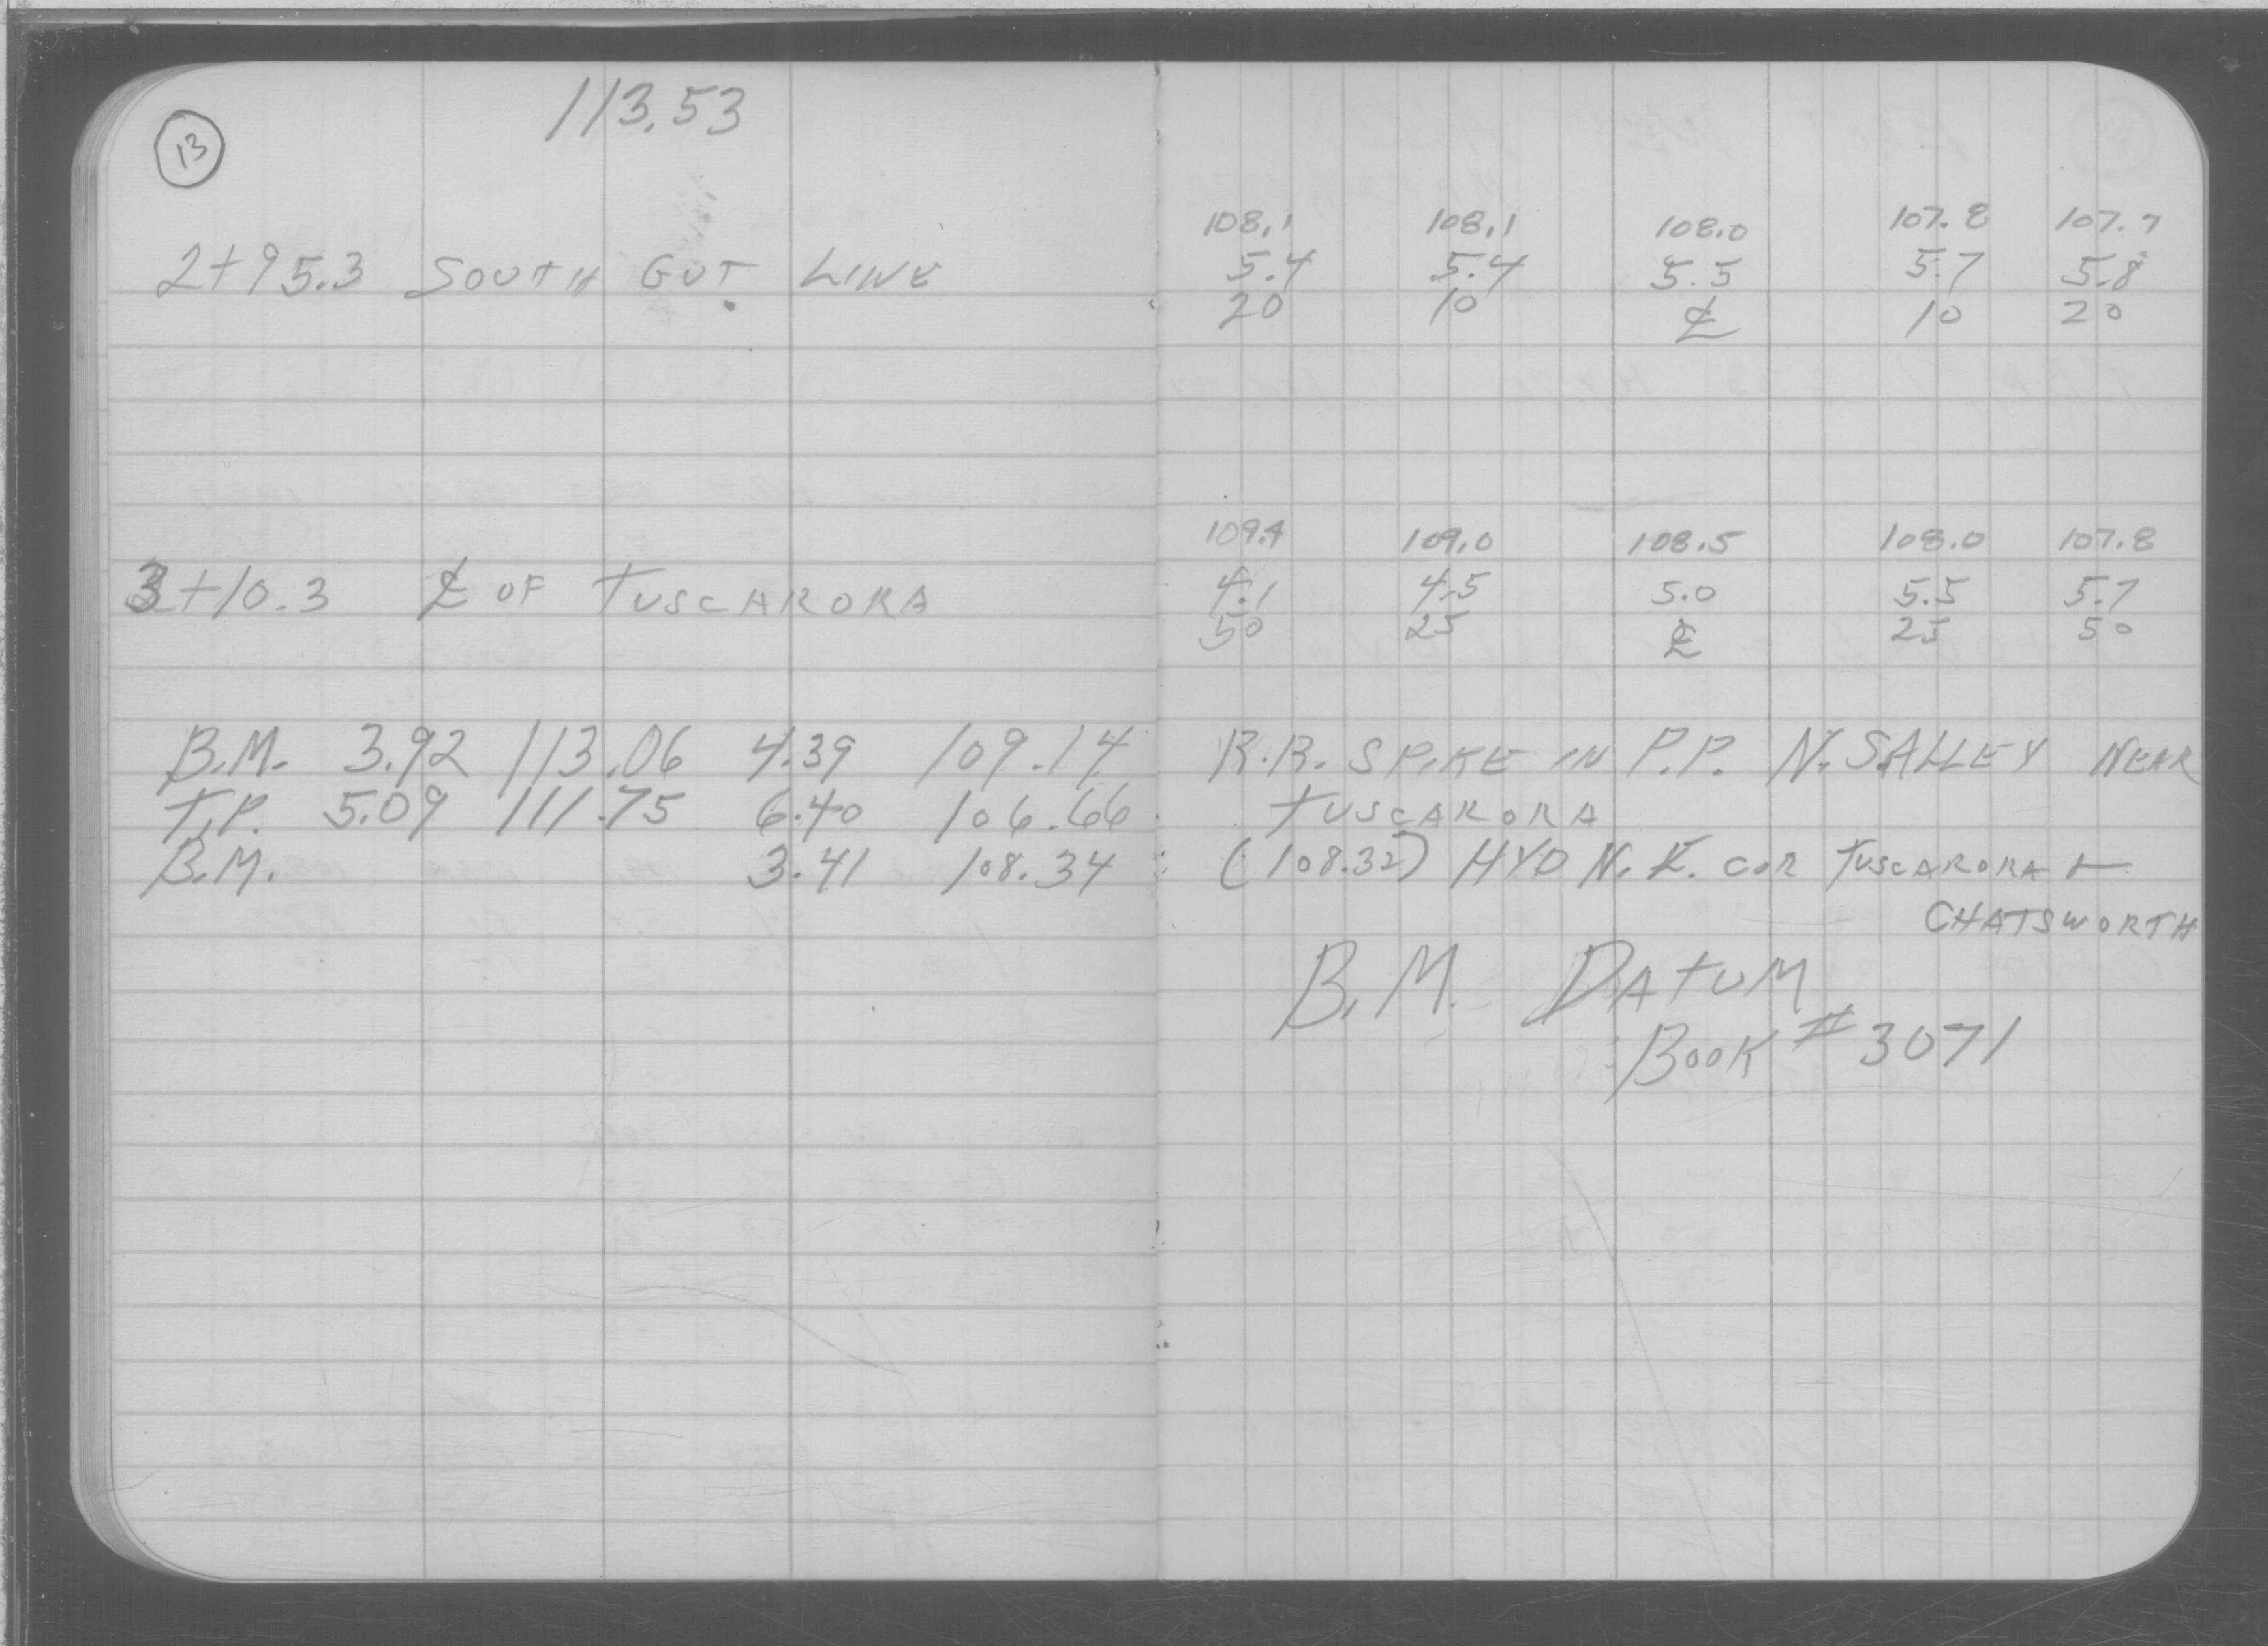 13
113.53
108.1 108.1 108.0 107.8 107.7
2+95.3 SOUTH GUT. LINE 5.4 5.4 5.5 5.7 5.8
20 10 ℄ 10 20
109.4 109.0 108.5 108.0 107.8
3+10.3 ℄ OF TUSCARORA 4.1 4.5 5.0 5.5 5.7
50 25 ℄ 25 50
B.M. 3.92 113.06 4.39 109.14 R.R. SPIKE IN P.P. N.S. ALLEY NEAR
T.P. 5.09 111.75 6.40 106.66 TUSCARORA
B.M. 3.41 108.34 (108.32) HYD N.E. COR TUSCARORA +
CHATSWORTH
B.M. DATUM
BOOK #3071